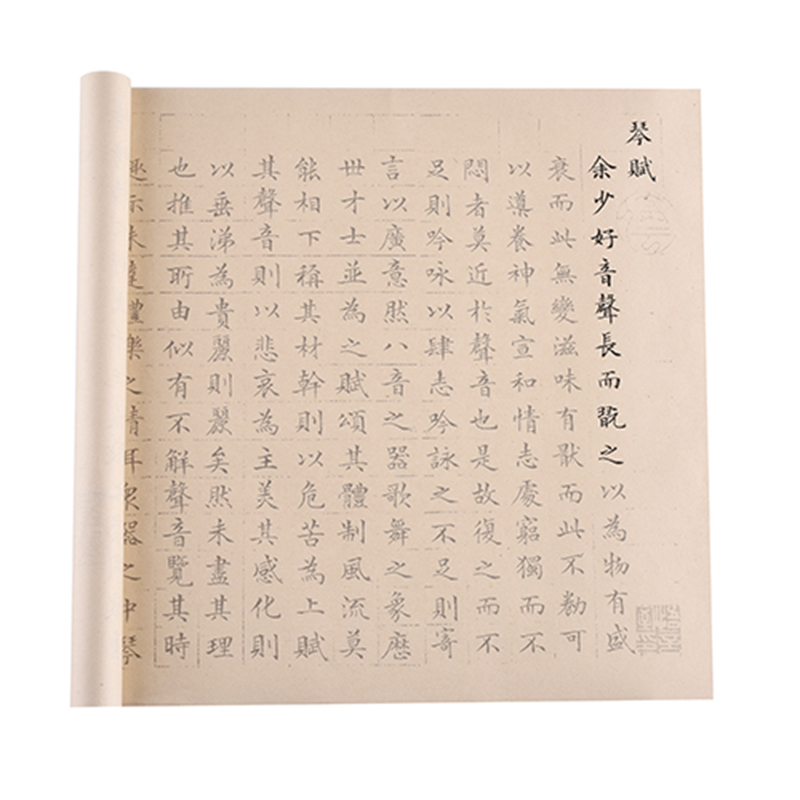 琴賦
余少好音聲長而翫之以為物有盛
衰而此無變滋味有猒而此不勌可
以導養神氣宣和情志處窮獨而不
悶者莫近於聲音也是故復之而不
足則吟咏以肆志吟詠之不足則寄
言以廣意然八音之器歌舞之象歷
世才士並為之賦頌其體制風流莫
能相下稱其材幹則以危苦為上賦
其聲音則以悲哀為主美其感化則
以垂涕為貴麗則麗矣然未盡其理
也推其所由似有不解聲音覽其時
趣亦未達禮樂之情耳衆器之中琴